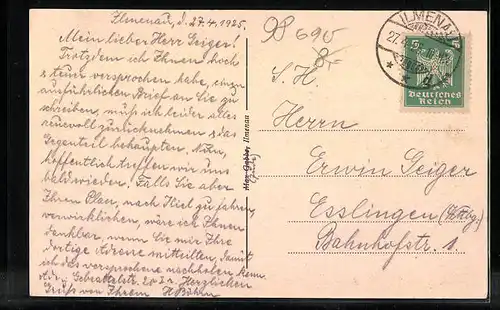 Ilmenau, d. 27.4.1925.
Mein lieber Herr Geiger!
Trotzdem ich Ihnen hoch
u. teuer versprochen habe, einen
ausführlichen Brief an Sie zu
schreiben, muß ich leider alles
reuevoll zurücknehmen u. das
Gegenteil behaupten. Nun,
hoffentlich treffen wir uns
bald wieder. Falls Sie aber
Ihren Plan, nach Kiel zu fahren,
verwirklichen, wäre ich Ihnen
dankbar, wenn Sie mir Ihre
dortige Adresse mitteilten, damit
ich das versprochene nachholen kann.
Adr.: 20 I. Herzlichen
Gruß von Ihrem H. Böhm
Ilmenau
98 690
8,-
ILMENAU
27.4.
Deutsches
Reich
S. H.
Herrn
Erwin Geiger
Esslingen (Wttbg.)
Bahnhofstr. 1